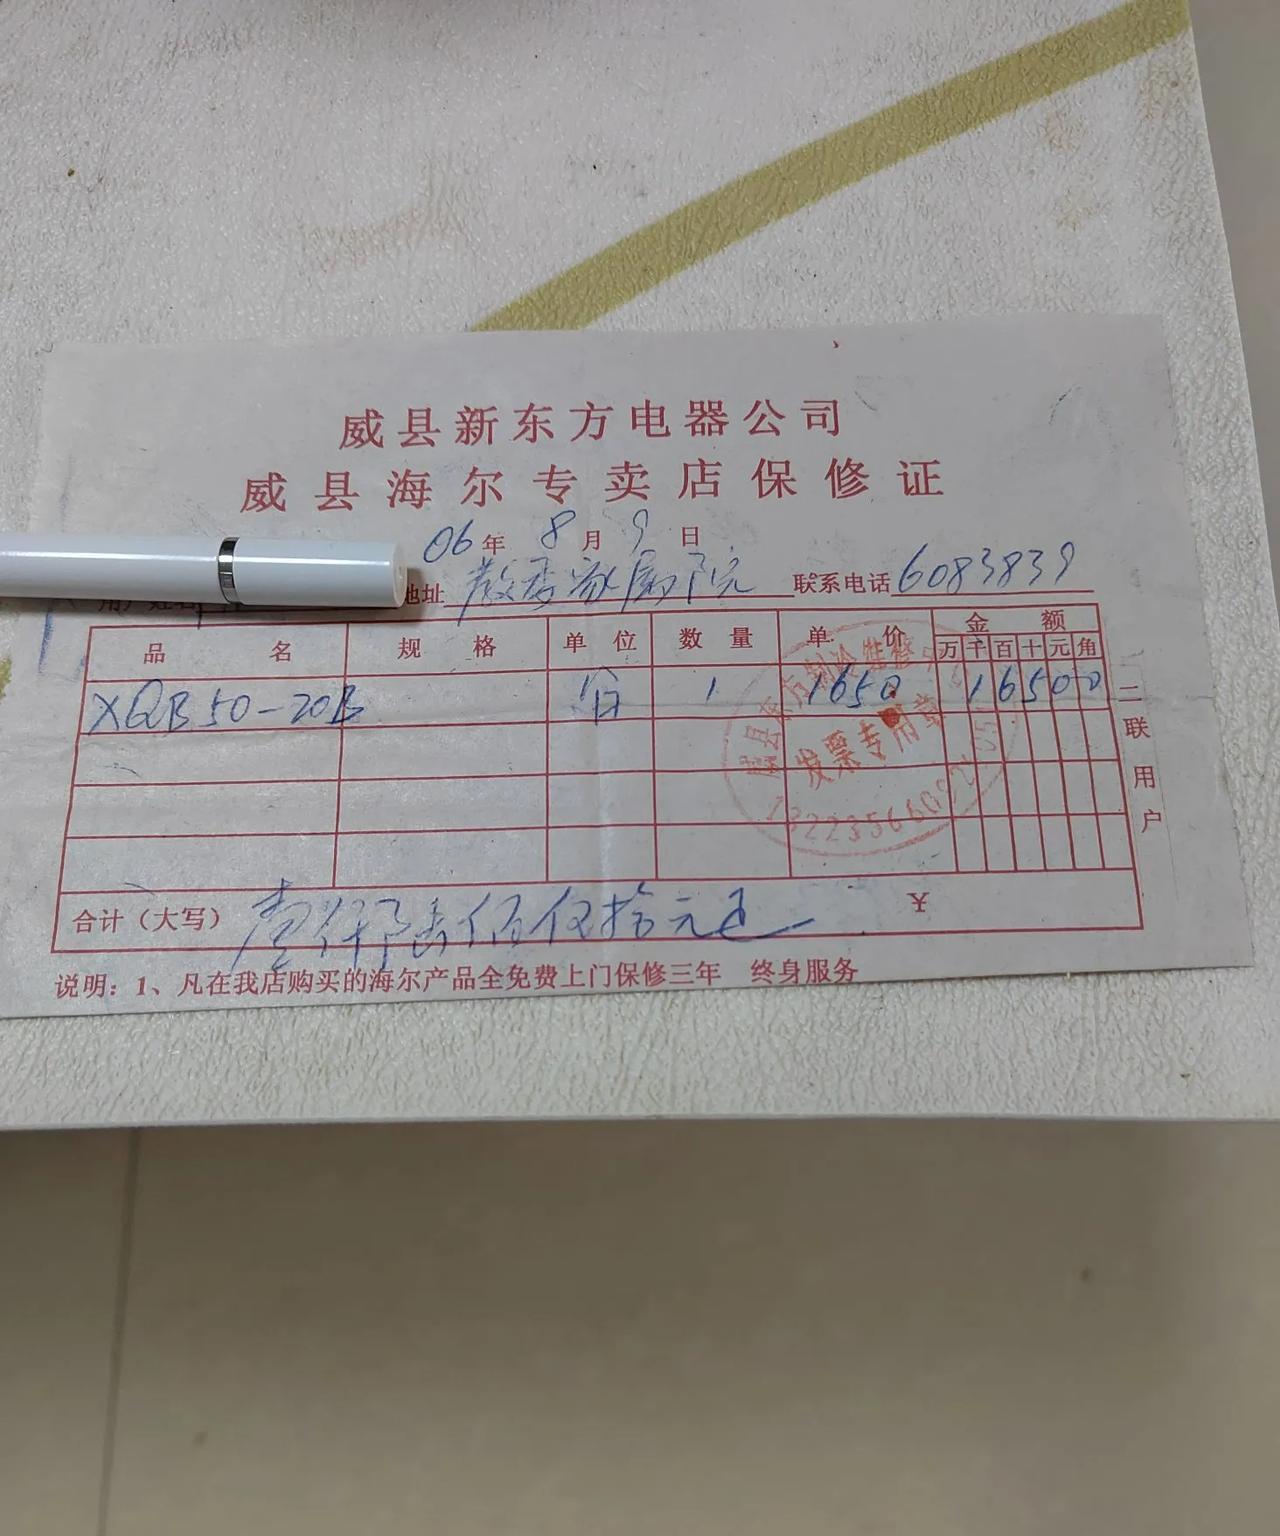 威县新东方电器公司
威县海尔专卖店保修证
06年 8月 9日
地址 教委家属院 联系电话 6083839
品名 规格 单位 数量 单价 金额
万 千 百 十 元 角
XQB50-20B 台 1 1650 1 6 5 0 0
发票专用章
合计（大写） 壹仟陆佰伍拾元正 ¥
说明：1、凡在我店购买的海尔产品全免费上门保修三年 终身服务
二联用户